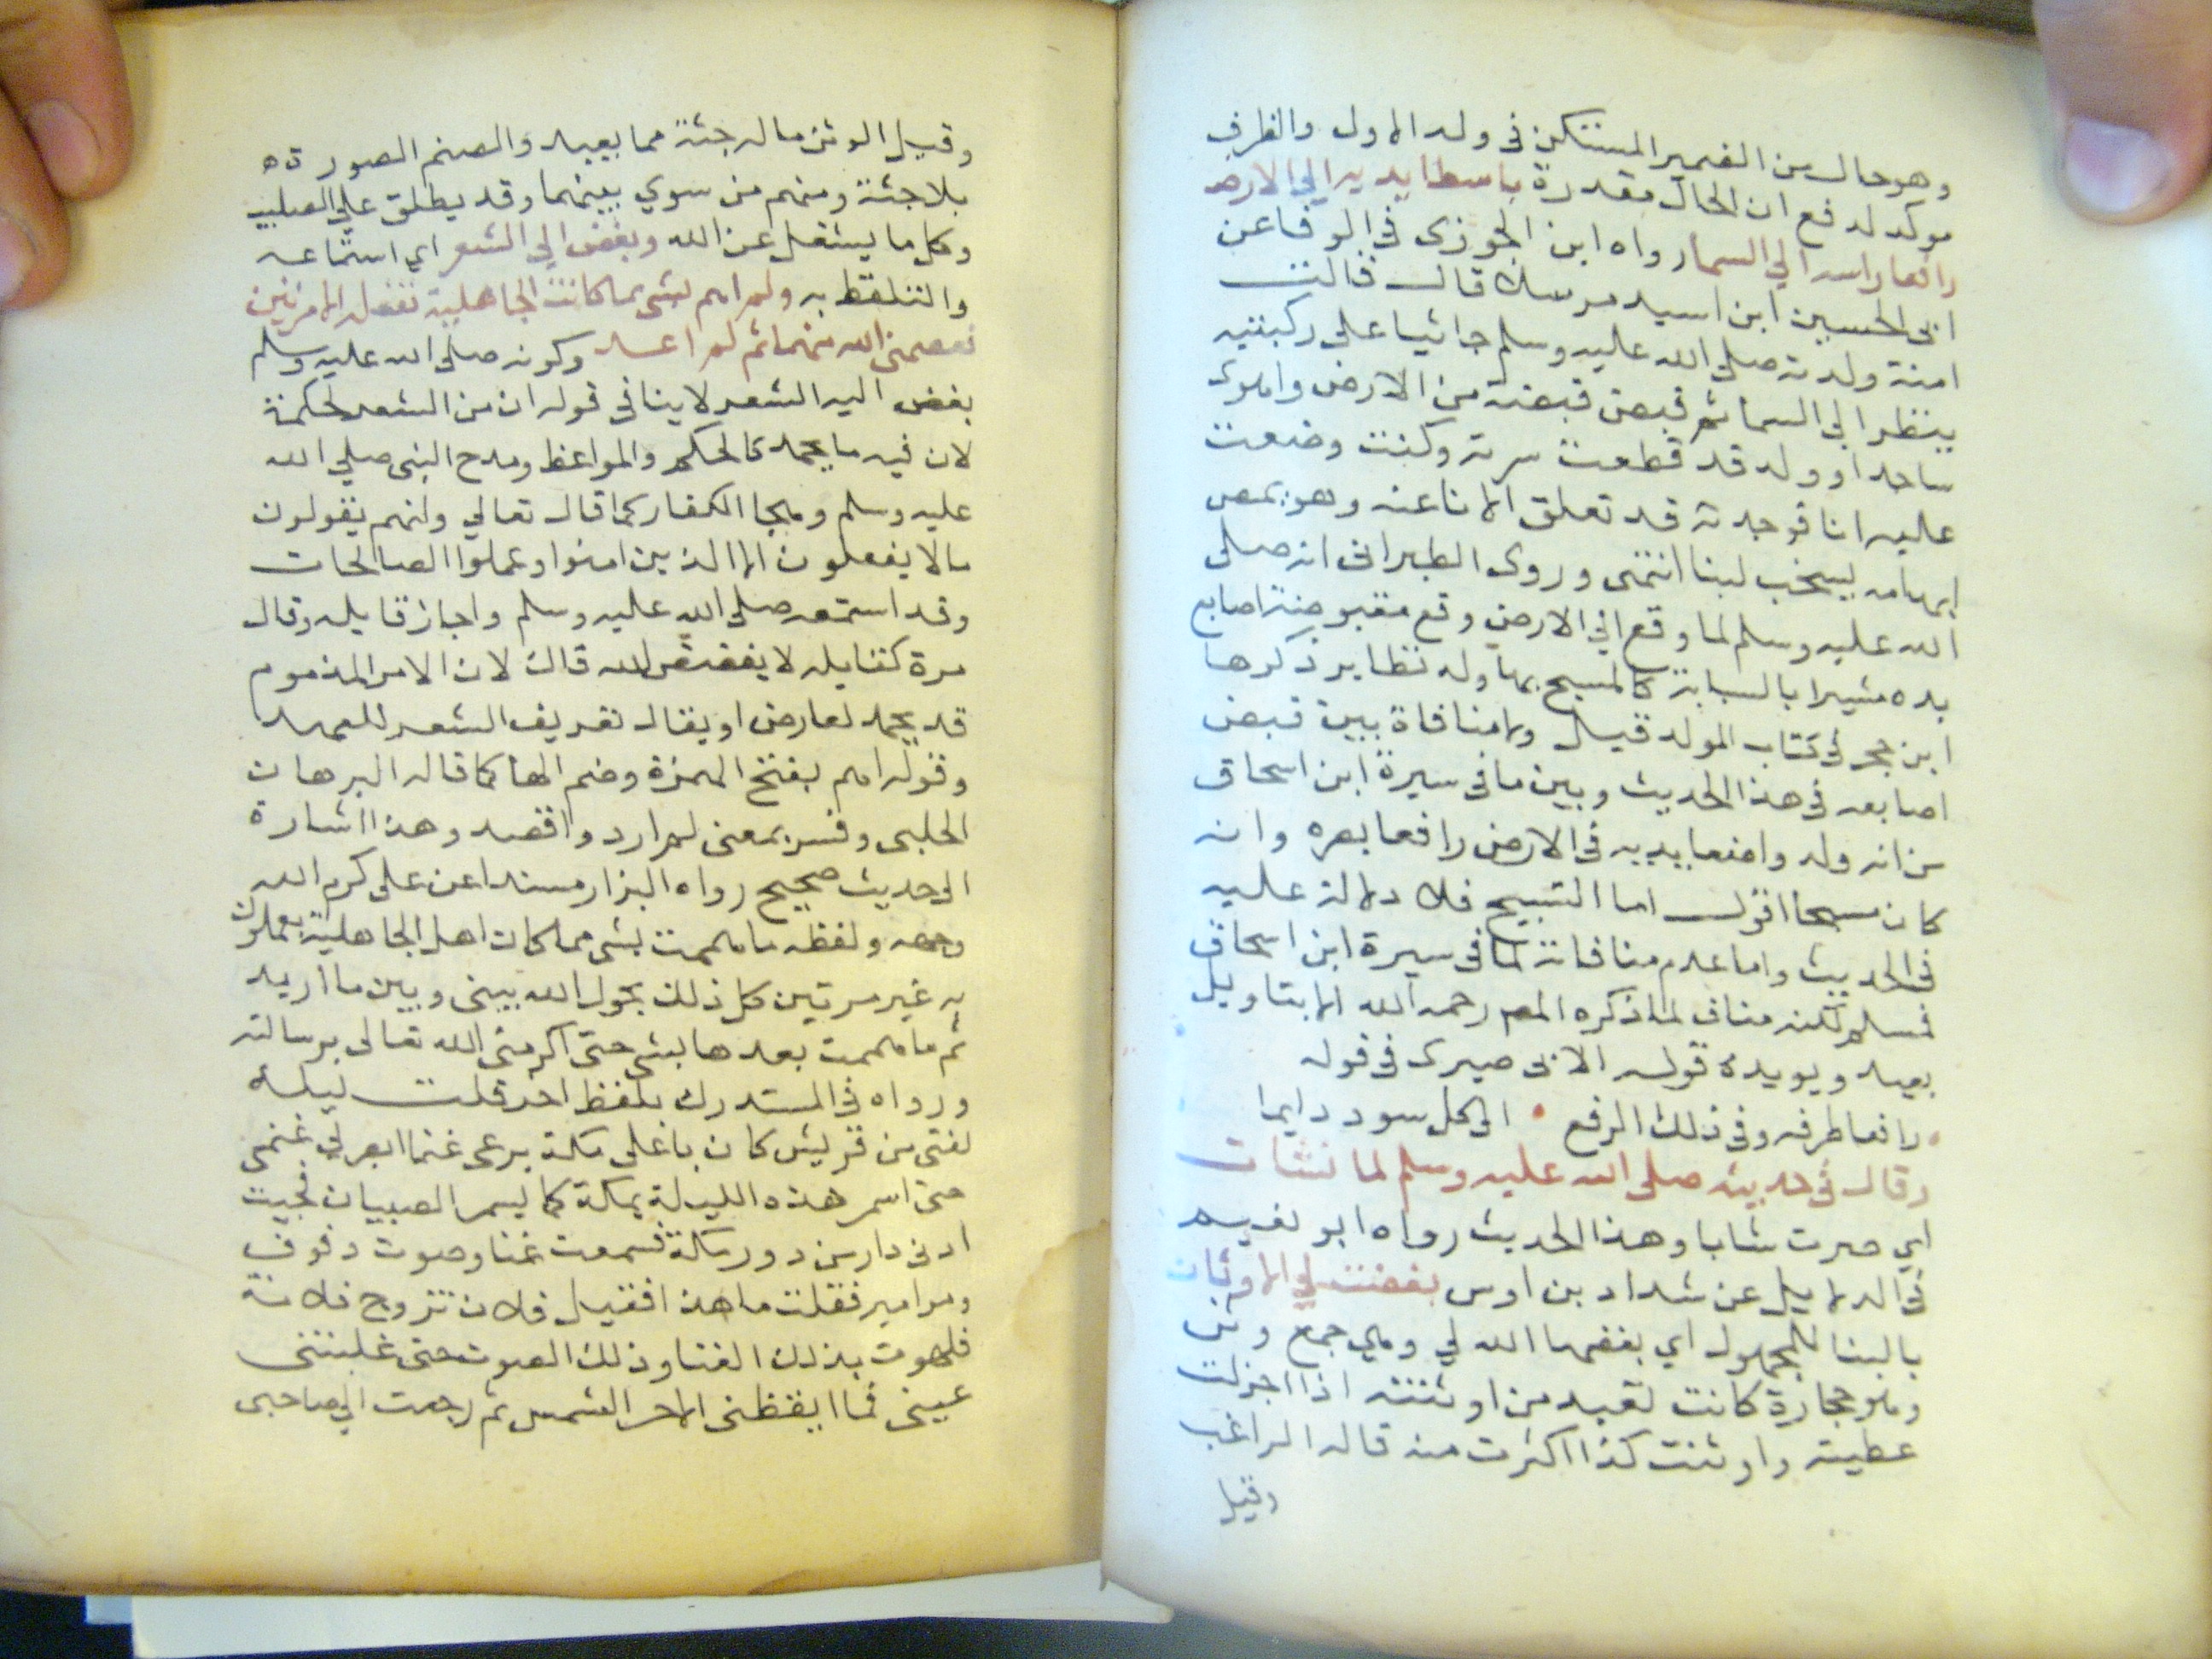 وهو حال من الضمير المستكن في ولد الاول والظرف
موكد له فع ان الحال مقدرة باسطا يديه الي الارض
رافعا راسه الي السما رواه ابن الجوزى في الوفا عن
ابى الحسين ابن اسيد مرسلا قال قالت
امنة ولدته صلى الله عليه وسلم جاثيا على ركبتيه
ينظر الي السما ثم قبض قبضة من الارض واهوى
ساجدا وولد قد قطعت سرته وكنت وضعت
عليه انا فوجدته قد تعلق الانا عنه وهو يمص
ابهامه ليشخب لبنا انتهى وروى الطبرانى انه صلى
الله عليه وسلم لما وقع الي الارض وقع مقبوضة اصابع
يده مشيرا بالسبابة كالمسبح بها وله نظاير ذكرها
ابن حجر في كتاب المولد قيل ولا منافاة بين قبض
اصابعه في هذا الحديث وبين ما في سيرة ابن اسحاق
من انه ولد واضعا يديه في الارض رافعا بصره وانه
كان مسبحا اقول اما التسبيح فلا دلالة عليه
في الحديث واما عدم منافاته لما في سيرة ابن اسحاق
فمسلم لكنه مناف لما ذكره المص رحمه الله الا بتاويل
بعيد ويويده قول الابى صيرى في قوله
رافعا طرفه وفي ذلك الرفع • الى كل سودد ايما
وقال في حديثه صلى الله عليه وسلم لما نشات
اي صرت شابا وهذا الحديث رواه ابو نعيم
في الدلايل عن شداد بن اوس بغضت الي الاوثان
بالبنا للمجهول اي بغضها الله لي وهي جمع وثن
وهو حجارة كانت تعبد من اوثنته اذا اجزلت
عطيته واوثنت كذا اكثرت منه قاله الراغب
وقيل
وقيل الوثن ماله جثة مما يعبد والصنم الصورة
بلا جثة ومنهم من سوي بينهما وقد يطلق علي الصليب
وكل ما يشغل عن الله وبغض الي الشعر اي استماعه
والتلفظ به ولم اهم بشى مما كانت الجاهلية تفعله الا مرتين
فعصمنى الله منهما ثم لم اعد وكونه صلى الله عليه وسلم
بغض اليه الشعر لا ينافي قوله ان من الشعر لحكمة
لان فيه ما يحمد كالحكم والمواعظ ومدح النبى صلي الله
عليه وسلم وهجا الكفار كما قال تعالي وانهم يقولون
ما لا يفعلون الا الذين امنوا وعملوا الصالحات
وقد استمعه صلى الله عليه وسلم واجاز قايله وقال
مرة لقايله لا يفضض الله قال لان الامر المذموم
قد يحمد لعارض او يقال تعريف الشعر للعهد
وقوله اهم بفتح الهمزة وضم الها كما قاله البرهان
الحلبى وفسر بمعنى لم ارد واقصد وهذا اشارة
الى حديث صحيح رواه البزار مسندا عن على كرم الله
وجهه ولفظه ما هممت بشى مما كان اهل الجاهلية يعملون
به غير مرتين كل ذلك يحول الله بينى وبين ما اريد
ثم ما هممت بعدها بشى حتى اكرمنى الله تعالى برسالته
ورواه في المستدرك بلفظ اخر قلت ليلة
لفتى من قريش كان باعلى مكة يرعى غنما ابصر لي غنمى
حتى اسمر هذه الليلة بمكة كما يسمر الصبيان فجيت
ادنى دار من دور مكة فسمعت غنا وصوت دفوف
ومزامير فقلت ما هذا فقيل فلان تزوج فلانة
فلهوت بذلك الغنا وذلك الصوت حتى غلبتنى
عينى فما ايقظنى الا حر الشمس ثم رجعت الي صاحبى